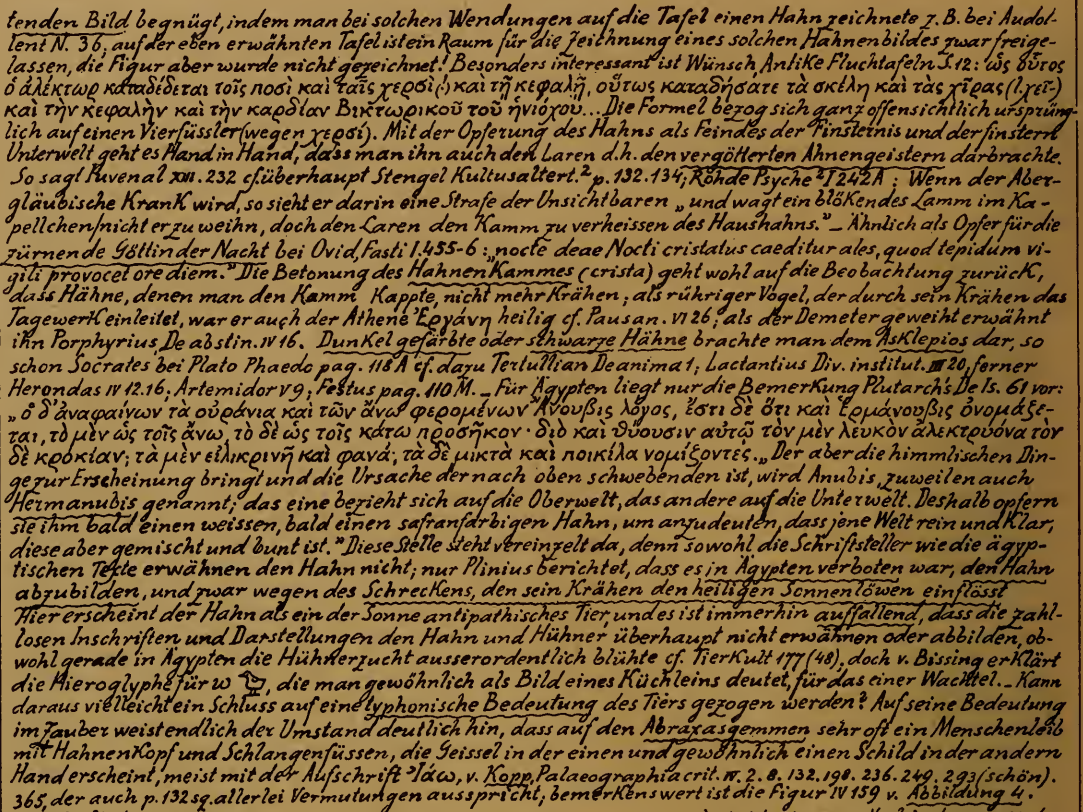 tenden Bild begnügt, indem man bei solchen Wendungen auf die Tafel einen Hahn zeichnete z. B. bei Audol-
lent N. 36, auf der eben erwähnten Tafel ist ein Raum für die Zeichnung eines solchen Hahnenbildes zwar freige-
lassen, die Figur aber wurde nicht gezeichnet! Besonders interessant ist Wünsch, Antike Fluchtafeln S. 12: ὡς οὗτος
ὁ ἀλέκτωρ καταδέδεται τοῖς ποσὶ καὶ ταῖς χερσὶ (!) καὶ τῇ κεφαλῇ, οὕτως καταδήσατε τὰ σκέλη καὶ τὰς χῖρας (l. χεῖ-)
καὶ τὴν κεφαλὴν καὶ τὴν καρδίαν Βικτωρικοῦ τοῦ ἡνιόχου... Die Formel bezog sich ganz offensichtlich ursprüng-
lich auf einen Vierfüssler (wegen χερσί). Mit der Opferung des Hahns als Feindes der Finsternis und der finstern
Unterwelt geht es Hand in Hand, dass man ihn auch den Laren d.h. den vergötterten Ahnengeistern darbrachte.
So sagt Juvenal XIII. 232 cf. überhaupt Stengel Kultusaltert.² p. 132. 134; Rohde Psyche² I 242 A : Wenn der Aber-
gläubische krank wird, so sieht er darin eine Strafe der Unsichtbaren „und wagt ein blökendes Lamm im Ka-
pellchen nicht er zu weihn, doch den Laren den Kamm zu verheissen des Haushahns." _ Ähnlich als Opfer für die
zürnende Göttin der Nacht bei Ovid, Fasti I. 455-6 : „nocte deae Nocti cristatus caeditur ales, quod tepidum vi-
gili provocet ore diem." Die Betonung des Hahnenkammes (crista) geht wohl auf die Beobachtung zurück,
dass Hähne, denen man den Kamm kappte, nicht mehr krähen ; als rühriger Vogel, der durch sein Krähen das
Tagewerk einleitet, war er auch der Athene Ἐργάνη heilig cf. Pausan. VI 26 ; als der Demeter geweiht erwähnt
ihn Porphyrius, De abstin. IV 16. Dunkel gefärbte oder schwarze Hähne brachte man dem Asklepios dar, so
schon Socrates bei Plato Phaedo pag. 118 A cf. dazu Tertullian De anima 1 ; Lactantius Div. institut. III 20, ferner
Herondas IV 12. 16, Artemidor V 9, Festus pag. 110 M. _ Für Ägypten liegt nur die Bemerkung Plutarch's De Is. 61 vor:
„ὁ δ'ἀναφαίνων τὰ οὐράνια καὶ τῶν ἄνω φερομένων Ἄνουβις λόγος, ἔστι δὲ ὅτι καὶ Ἑρμάνουβις ὀνομάζε-
ται, τὸ μὲν ὡς τοῖς ἄνω, τὸ δὲ ὡς τοῖς κάτω προσῆκον · διὸ καὶ θύουσιν αὐτῷ τὸν μὲν λευκὸν ἀλεκτρυόνα τὸν
δὲ κροκίαν ; τὰ μὲν εἰλικρινῆ καὶ φανά ; τὰ δὲ μικτὰ καὶ ποικίλα νομίζοντες. „Der aber die himmlischen Din-
ge zur Erscheinung bringt und die Ursache der nach oben schwebenden ist, wird Anubis, zuweilen auch
Hermanubis genannt; das eine bezieht sich auf die Oberwelt, das andere auf die Unterwelt. Deshalb opfern
sie ihm bald einen weissen, bald einen safranfarbigen Hahn, um anzudeuten, dass jene Welt rein und klar,
diese aber gemischt und bunt ist." Diese Stelle steht vereinzelt da, denn sowohl die Schriftsteller wie die ägyp-
tischen Texte erwähnen den Hahn nicht; nur Plinius berichtet, dass es in Ägypten verboten war, den Hahn
abzubilden, und zwar wegen des Schreckens, den sein Krähen den heiligen Sonnenlöwen einflösst
Hier erscheint der Hahn als ein der Sonne antipathisches Tier, und es ist immerhin auffallend, dass die zahl-
losen Inschriften und Darstellungen den Hahn und Hühner überhaupt nicht erwähnen oder abbilden, ob-
wohl gerade in Ägypten die Hühnerzucht ausserordentlich blühte cf. Tierkult 177 (48), doch v. Bissing erklärt
die Hieroglyphe für w , die man gewöhnlich als Bild eines Küchleins deutet, für das einer Wachtel. _ Kann
daraus vielleicht ein Schluss auf eine typhonische Bedeutung des Tiers gezogen werden? Auf seine Bedeutung
im Zauber weist endlich der Umstand deutlich hin, dass auf den Abraxasgemmen sehr oft ein Menschenleib
mit Hahnenkopf und Schlangenfüssen, die Geissel in der einen und gewöhnlich einen Schild in der andern
Hand erscheint, meist mit der Aufschrift Ἰάω, v. Kopp, Palaeographia crit. IV. 2. 8. 132. 198. 236. 249. 293 (schön).
365, der auch p. 132 sq. allerlei Vermutungen ausspricht; bemerkenswert ist die Figur IV 159 v. Abbildung 4.